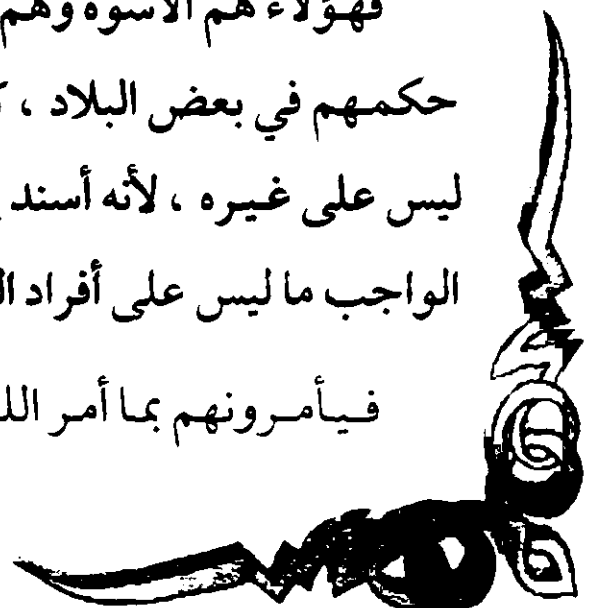 فهؤلاء هم الأسوة وهم
حكمهم في بعض البلاد ،
ليس على غيره ، لأنه أسند
الواجب ما ليس على أفراد
فيأمرونهم بما أمر